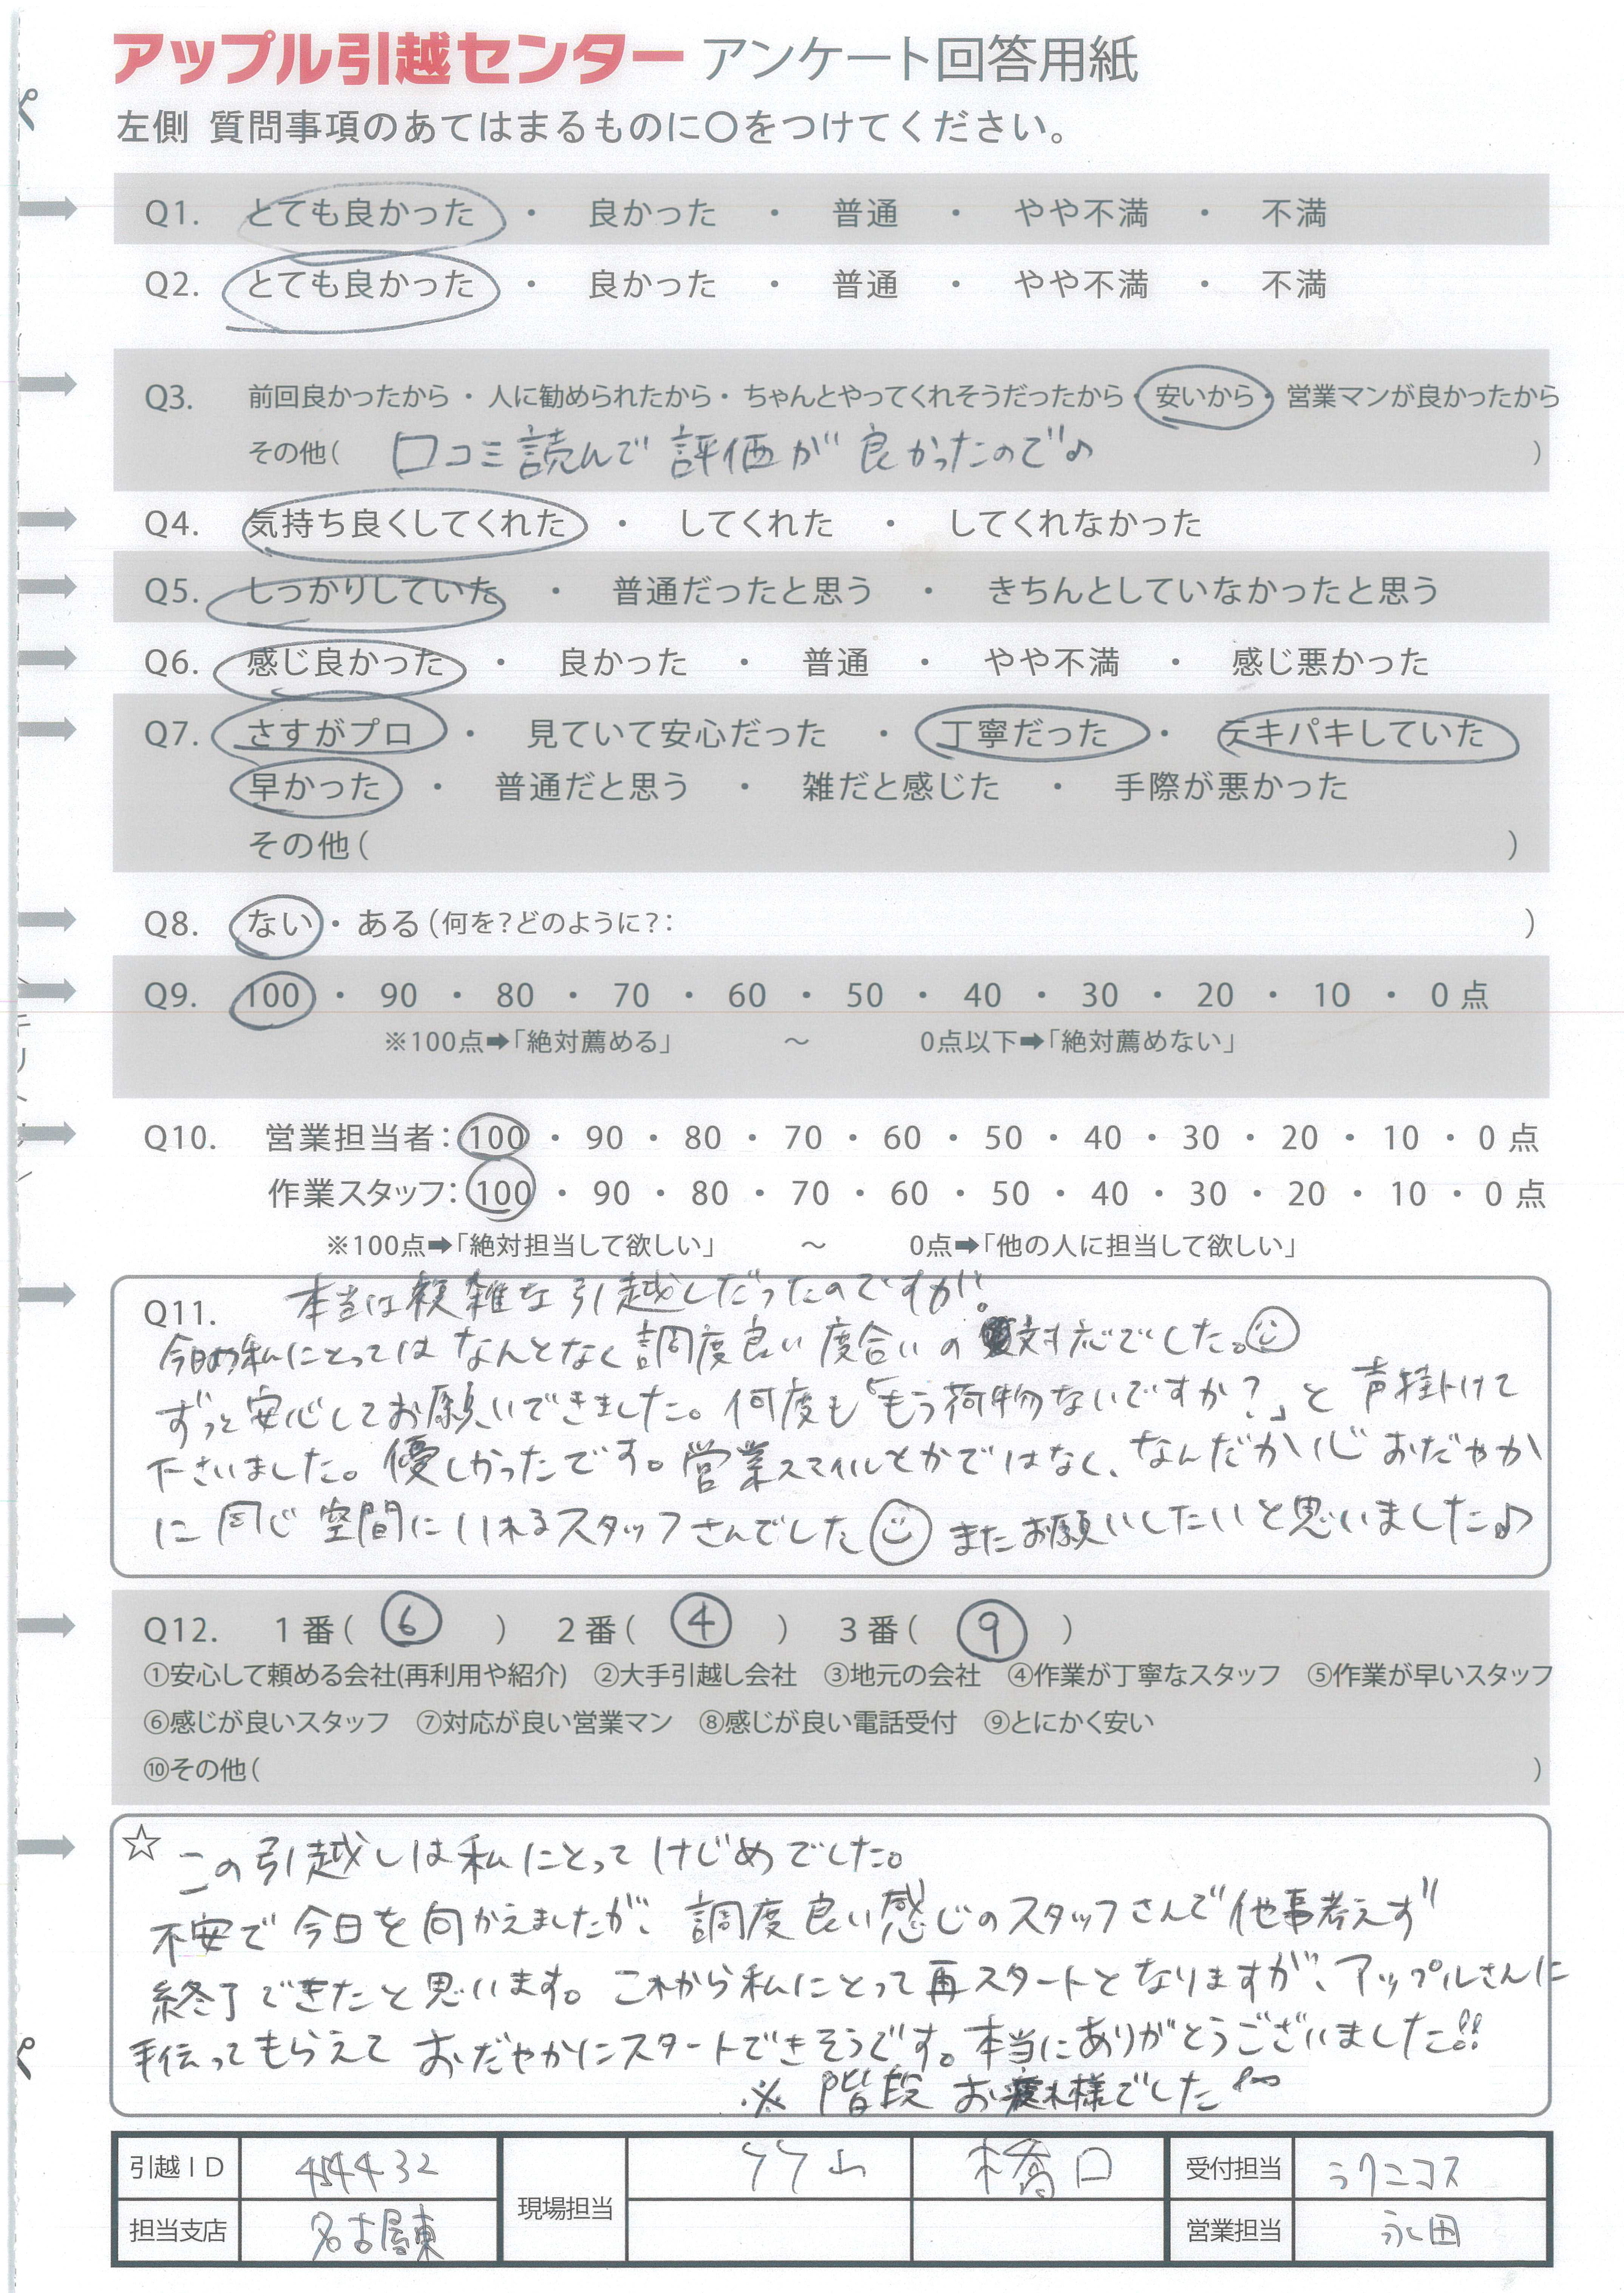 アップル引越センター アンケート回答用紙
左側 質問事項のあてはまるものに○をつけてください。
Q1. とても良かった ・ 良かった ・ 普通 ・ やや不満 ・ 不満
Q2. とても良かった ・ 良かった ・ 普通 ・ やや不満 ・ 不満
Q3. 前回良かったから ・ 人に勧められたから ・ ちゃんとやってくれそうだったから ・ 安いから ・ 営業マンが良かったから
その他( 口コミ読んで評価が良かったので♪ )
Q4. 気持ち良くしてくれた ・ してくれた ・ してくれなかった
Q5. しっかりしていた ・ 普通だったと思う ・ きちんとしていなかったと思う
Q6. 感じ良かった ・ 良かった ・ 普通 ・ やや不満 ・ 感じ悪かった
Q7. さすがプロ ・ 見ていて安心だった ・ 丁寧だった ・ テキパキしていた
早かった ・ 普通だと思う ・ 雑だと感じた ・ 手際が悪かった
その他( )
Q8. ない ・ ある (何を?どのように?: )
Q9. 100 ・ 90 ・ 80 ・ 70 ・ 60 ・ 50 ・ 40 ・ 30 ・ 20 ・ 10 ・ 0 点
※100点➡「絶対薦める」 ～ 0点以下➡「絶対薦めない」
Q10. 営業担当者: 100 ・ 90 ・ 80 ・ 70 ・ 60 ・ 50 ・ 40 ・ 30 ・ 20 ・ 10 ・ 0 点
作業スタッフ: 100 ・ 90 ・ 80 ・ 70 ・ 60 ・ 50 ・ 40 ・ 30 ・ 20 ・ 10 ・ 0 点
※100点➡「絶対担当して欲しい」 ～ 0点➡「他の人に担当して欲しい」
Q11. 本当は複雑な引越しだったのですが。
今日の私にとってはなんとなく調度良い度合いの対応でした。☺
ずっと安心してお願いできました。何度も「もう荷物ないですか?」と声掛けて
下さいました。優しかったです。営業スマイルとかではなく、なんだか心おだやか
に同じ空間にいれるスタッフさんでした☺またお願いしたいと思いました♪
Q12. 1番( ⑥ ) 2番( ④ ) 3番( ⑨ )
①安心して頼める会社(再利用や紹介) ②大手引越し会社 ③地元の会社 ④作業が丁寧なスタッフ ⑤作業が早いスタッフ
⑥感じが良いスタッフ ⑦対応が良い営業マン ⑧感じが良い電話受付 ⑨とにかく安い
⑩その他( )
☆ この引越しは私にとってけじめでした。
不安で今日を向かえましたが、調度良い感じのスタッフさんで他事考えず
終了できたと思います。これから私にとって再スタートとなりますが、アップルさんに
手伝ってもらえておだやかにスタートできそうです。本当にありがとうございました!!
※階段お疲れ様でした
引越ID 454432 現場担当 竹山 橋口 受付担当 うりニコス
担当支店 名古屋東 営業担当 永田